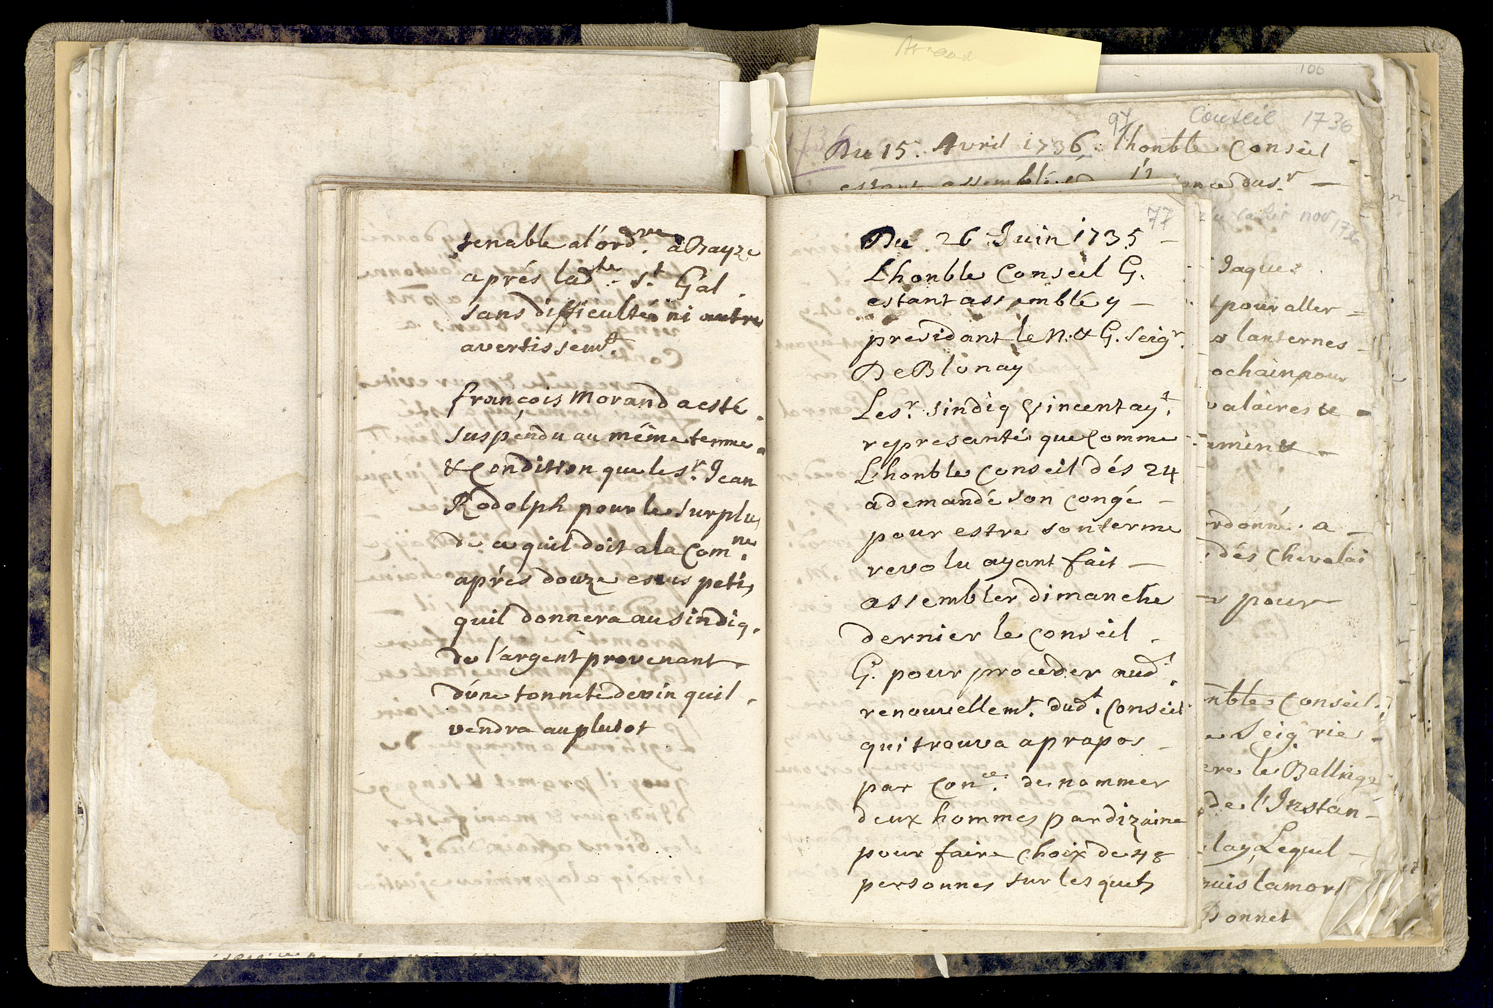 tenable a l'ord.re a Bayze
aprés lad.te S.t Gal
sans difficulte ni autre
avertissem.t
françois Morand a esté
suspendu au méme terme
& Condition que le s.r Jean
Rodolph pour le surplus
de ce quil doit a la Com.ne
aprés douze escus petis
quil donnera au sindiq.
de l'argent provenant
d'une tonnete de vin quil
vendra au plutot
77
Du 26 Juin 1735
L'honble Conseil G.
estant assemblé y
presidant le N. & G. Seig.r
De Blonay
Le s.r sindiq Vincent ay.t
representé que comme
L'honble Conseil dés 24
a demandé son congé
pour estre son terme
revolu ayant fait
assembler dimanche
dernier le Conseil
G. pour proceder aud.t
renouvellem.t dud.t Conseil
qui trouva a propos
par Con.ce de nommer
deux hommes par dizaine
pour faire choix de 48
personnes sur les quels
Arraux
106
97 Conseil 1736
Du 15. Avril 1736. l'honble Conseil
estant assemblé
nov 1736
Jaques
pour aller
lanternes
ochain pour
ordonné a
dés Chevalai
pour
nble Conseil
Seig.rie
ere le Ballinge
de l'Instan
lay Lequel
puis la mort
Donnet